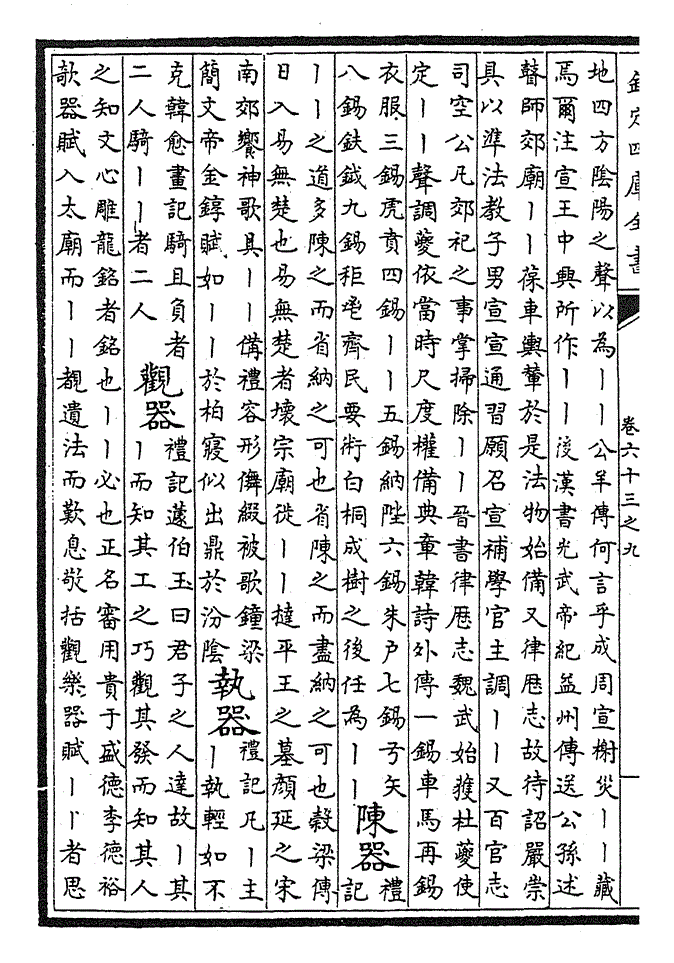 欽定四庫全書
卷六十三之九
地四方陰陽之聲以為丨丨公羊傳何言乎成周宣榭災丨丨藏
焉爾注宣王中興所作丨丨後漢書光武帝紀益州傳送公孫述
瞽師郊廟丨丨葆車輿輦於是法物始備又律厯志故待詔嚴崇
具以準法教子男宣宣通習願召宣補學官主調丨丨又百官志
司空公凡郊祀之事掌掃除丨丨晉書律厯志魏武始獲杜夔使
定丨丨聲調夔依當時尺度權備典章韓詩外傳一錫車馬再錫
衣服三錫虎賁四錫丨丨五錫納陛六錫朱戶七錫弓矢
八錫鈇鉞九錫秬鬯齊民要術白桐成樹之後任為丨丨
陳器
禮
記
丨丨之道多陳之而省納之可也省陳之而盡納之可也穀梁傳
日入易無楚也易無楚者壞宗廟徙丨丨撻平王之墓顏延之宋
南郊饗神歌具丨丨備禮容形儛綴被歌鐘梁
簡文帝金錞賦如丨丨於柏寢似出鼎於汾陰
執器
禮記凡丨主
丨執輕如不
克韓愈畫記騎且負者
二人騎丨丨者二人
觀器
禮記蘧伯玉曰君子之人達故丨其
丨而知其工之巧觀其發而知其人
之知文心雕龍銘者銘也丨丨必也正名審用貴于盛德李德裕
欹器賦入太廟而丨丨覩遺法而歎息敬括觀樂器賦丨丨者思